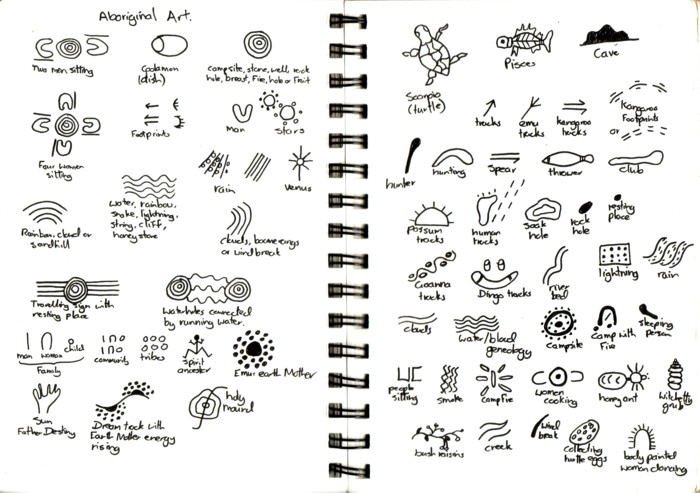 Aboriginal Art.
Two men sitting
Coolamon
(dish)
campsite, stone, well, rock
hole, breast, Fire, hole or Fruit
Four women
sitting
Footprints
man
stars
rain
venus
Rainbow, cloud or
sandhill
water, rainbow,
snake, lightning,
string, cliff,
honey store
clouds, boomerangs
or windbreak
Travelling sign with
resting place
Waterholes connected
by running water.
man
woman
child
Family
community
tribes
spirit
ancestor
Emu earth Mother
Sun
Father Destiny
Dream tock with
Earth Mother energy
rising
holy
mound
Scorpio
(turtle)
Pisces
Cave
tracks
emu
tracks
kangaroo
tracks
Kangaroo
Footprints
or
hunter
hunting
spear
thrower
club
possum
tracks
human
tracks
Soak
hole
rock
hole
resting
place
Goanna
tracks
Dingo tracks
river
bed
lightning
rain
clouds
water/blood
geneology
campsite
camp with
Fire
sleeping
person
people
sitting
smoke
campfire
women
cooking
hony ant
Witchetty
grub
bush raisins
creek
wind
break
collecting
turtle eggs
body painted
women dancing